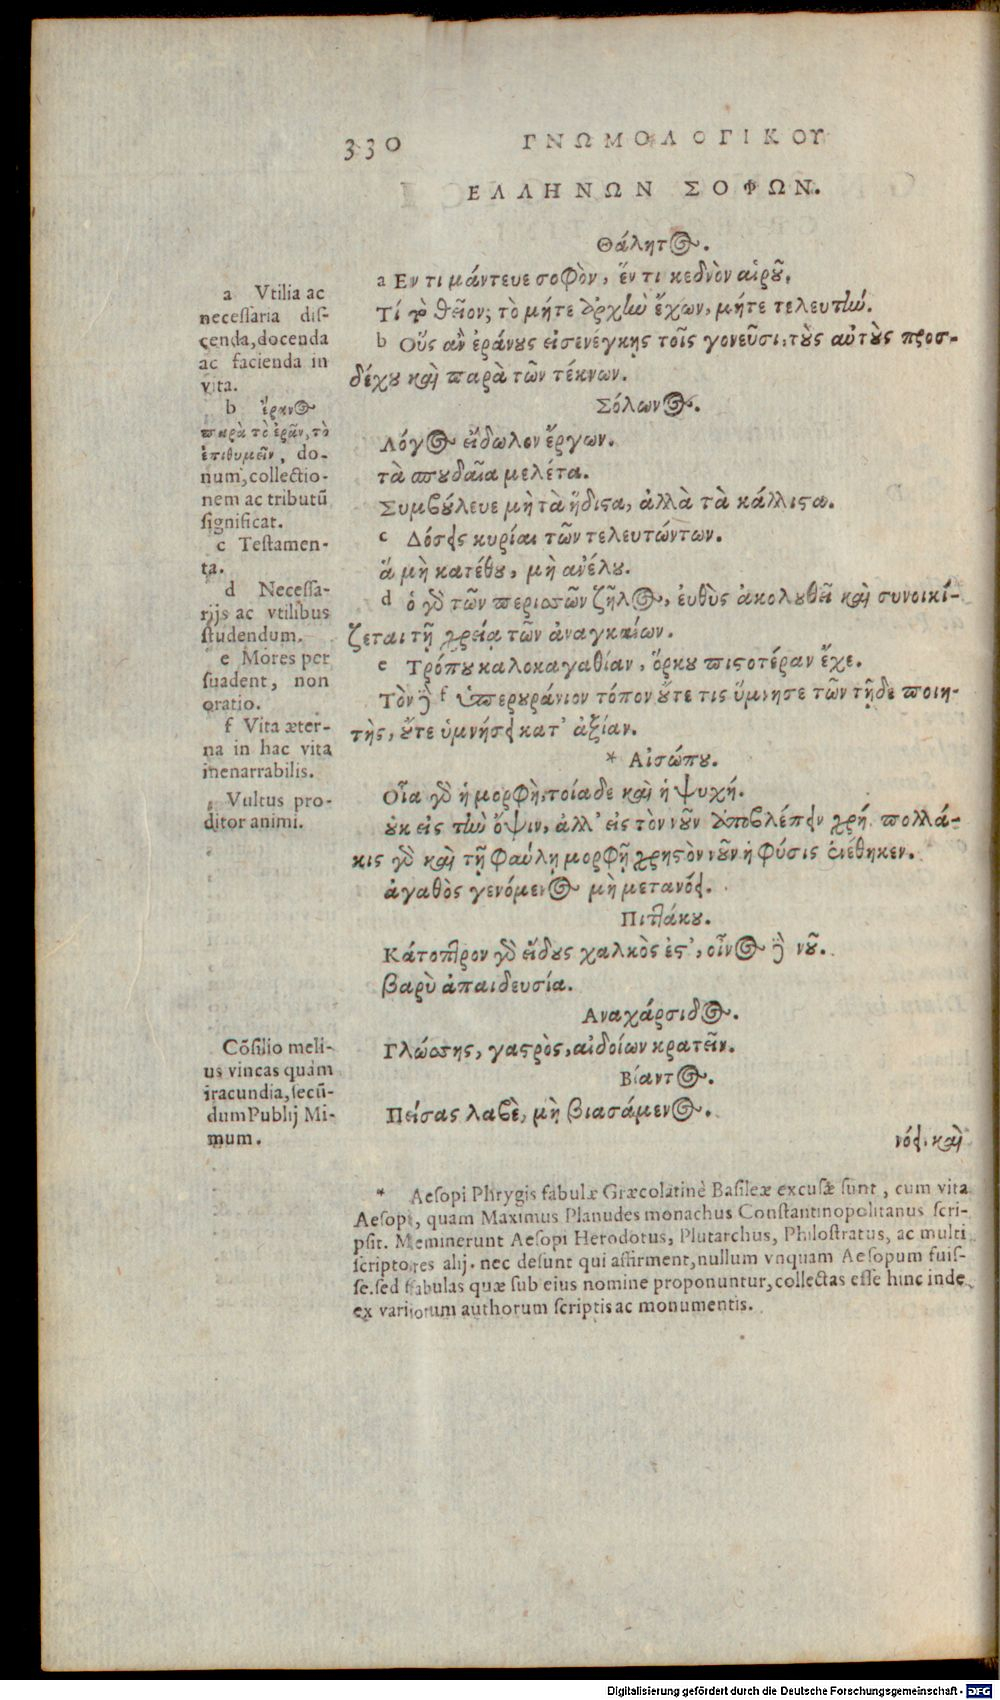 330 ΓΝΩΜΟΛΟΓΙΚΟΥ
ΕΛΛΗΝΩΝ ΣΟΦΩΝ.
Θάλητος.
a Εν τι μάντευε σοφὸν, ἕν τι κεδνὸν αἱροῦ.
Τί τὸ θεῖον; τὸ μήτε ἀρχὴν ἔχων, μήτε τελευτήν.
b Οὓς ἂν ἐράνους εἰσενέγκῃς τοῖς γονεῦσι, τοὺς αὐτοὺς προσ-
δέχου καὶ παρὰ τῶν τέκνων.
Σόλωνος.
Λόγος εἴδωλον ἔργων.
τὰ σπουδαῖα μελέτα.
Συμβούλευε μὴ τὰ ἥδιστα, ἀλλὰ τὰ κάλλιστα.
c Δόσεις κυρίαι τῶν τελευτώντων.
ἃ μὴ κατέθου, μὴ ἀνέλου.
d ὁ γὸ τῶν περισσῶν ζῆλος, εὐθὺς ἀκολουθεῖ καὶ συνοικί-
ζεται τῇ χρείᾳ τῶν ἀναγκαίων.
e Τρόπου καλοκαγαθίαν, ὅρκου πιστοτέραν ἔχε.
Τὸν δὲ f ὑπερουράνιον τόπον οὔτε τις ὕμνησε τῶν τῇδε ποιη-
τὴς, οὔτε ὑμνήσει κατ' ἀξίαν.
* Αἰσώπου.
Οἵα γὸ ἡ μορφὴ, τοίαδε καὶ ἡ ψυχή.
οὐκ εἰς τὴν ὄψιν, ἀλλ' εἰς τὸν νοῦν ἀποβλέπειν χρή. πολλά-
κις γὸ καὶ τῇ φαύλῃ μορφῇ χρηστὸν νοῦν ἡ φύσις ἐνέθηκεν.
ἀγαθὸς γενόμενος μὴ μετανόει.
Πιττάκου.
Κάτοπτρον γὸ εἴδους χαλκὸς ἐστ', οἶνος δὲ νοῦ.
βαρὺ ἀπαιδευσία.
Αναχάρσιδος.
Γλώσσης, γαστρὸς, αἰδοίων κρατεῖν.
Βίαντος.
Πείσας λαβὲ, μὴ βιασάμενος.
νόει καὶ
a Vtilia ac
necessaria dis-
cenda, docenda
ac facienda in
vita.
b ἔρανος
παρὰ τὸ ἐρᾶν, τὸ
ἐπιθυμεῖν, do-
num, collectio-
nem ac tributū
significat.
c Testamen-
ta.
d Necessa-
rijs ac vtilibus
studendum.
e Mores per
suadent, non
oratio.
f Vita æter-
na in hac vita
inenarrabilis.
Vultus pro-
ditor animi.
Cōsilio meli-
us vincas quàm
iracundia, secū-
dum Publij Mi-
mum.
* Aesopi Phrygis fabulæ Græcolatinè Basileæ excusæ sunt, cum vita
Aesopi, quam Maximus Planudes monachus Constantinopolitanus scri-
psit. Meminerunt Aesopi Herodotus, Plutarchus, Philostratus, ac multi
scriptores alij. nec desunt qui affirment, nullum vnquam Aesopum fuis-
se. sed fabulas quæ sub eius nomine proponuntur, collectas esse hinc inde
ex variorum authorum scriptis ac monumentis.
Digitalisierung gefördert durch die Deutsche Forschungsgemeinschaft - DFG